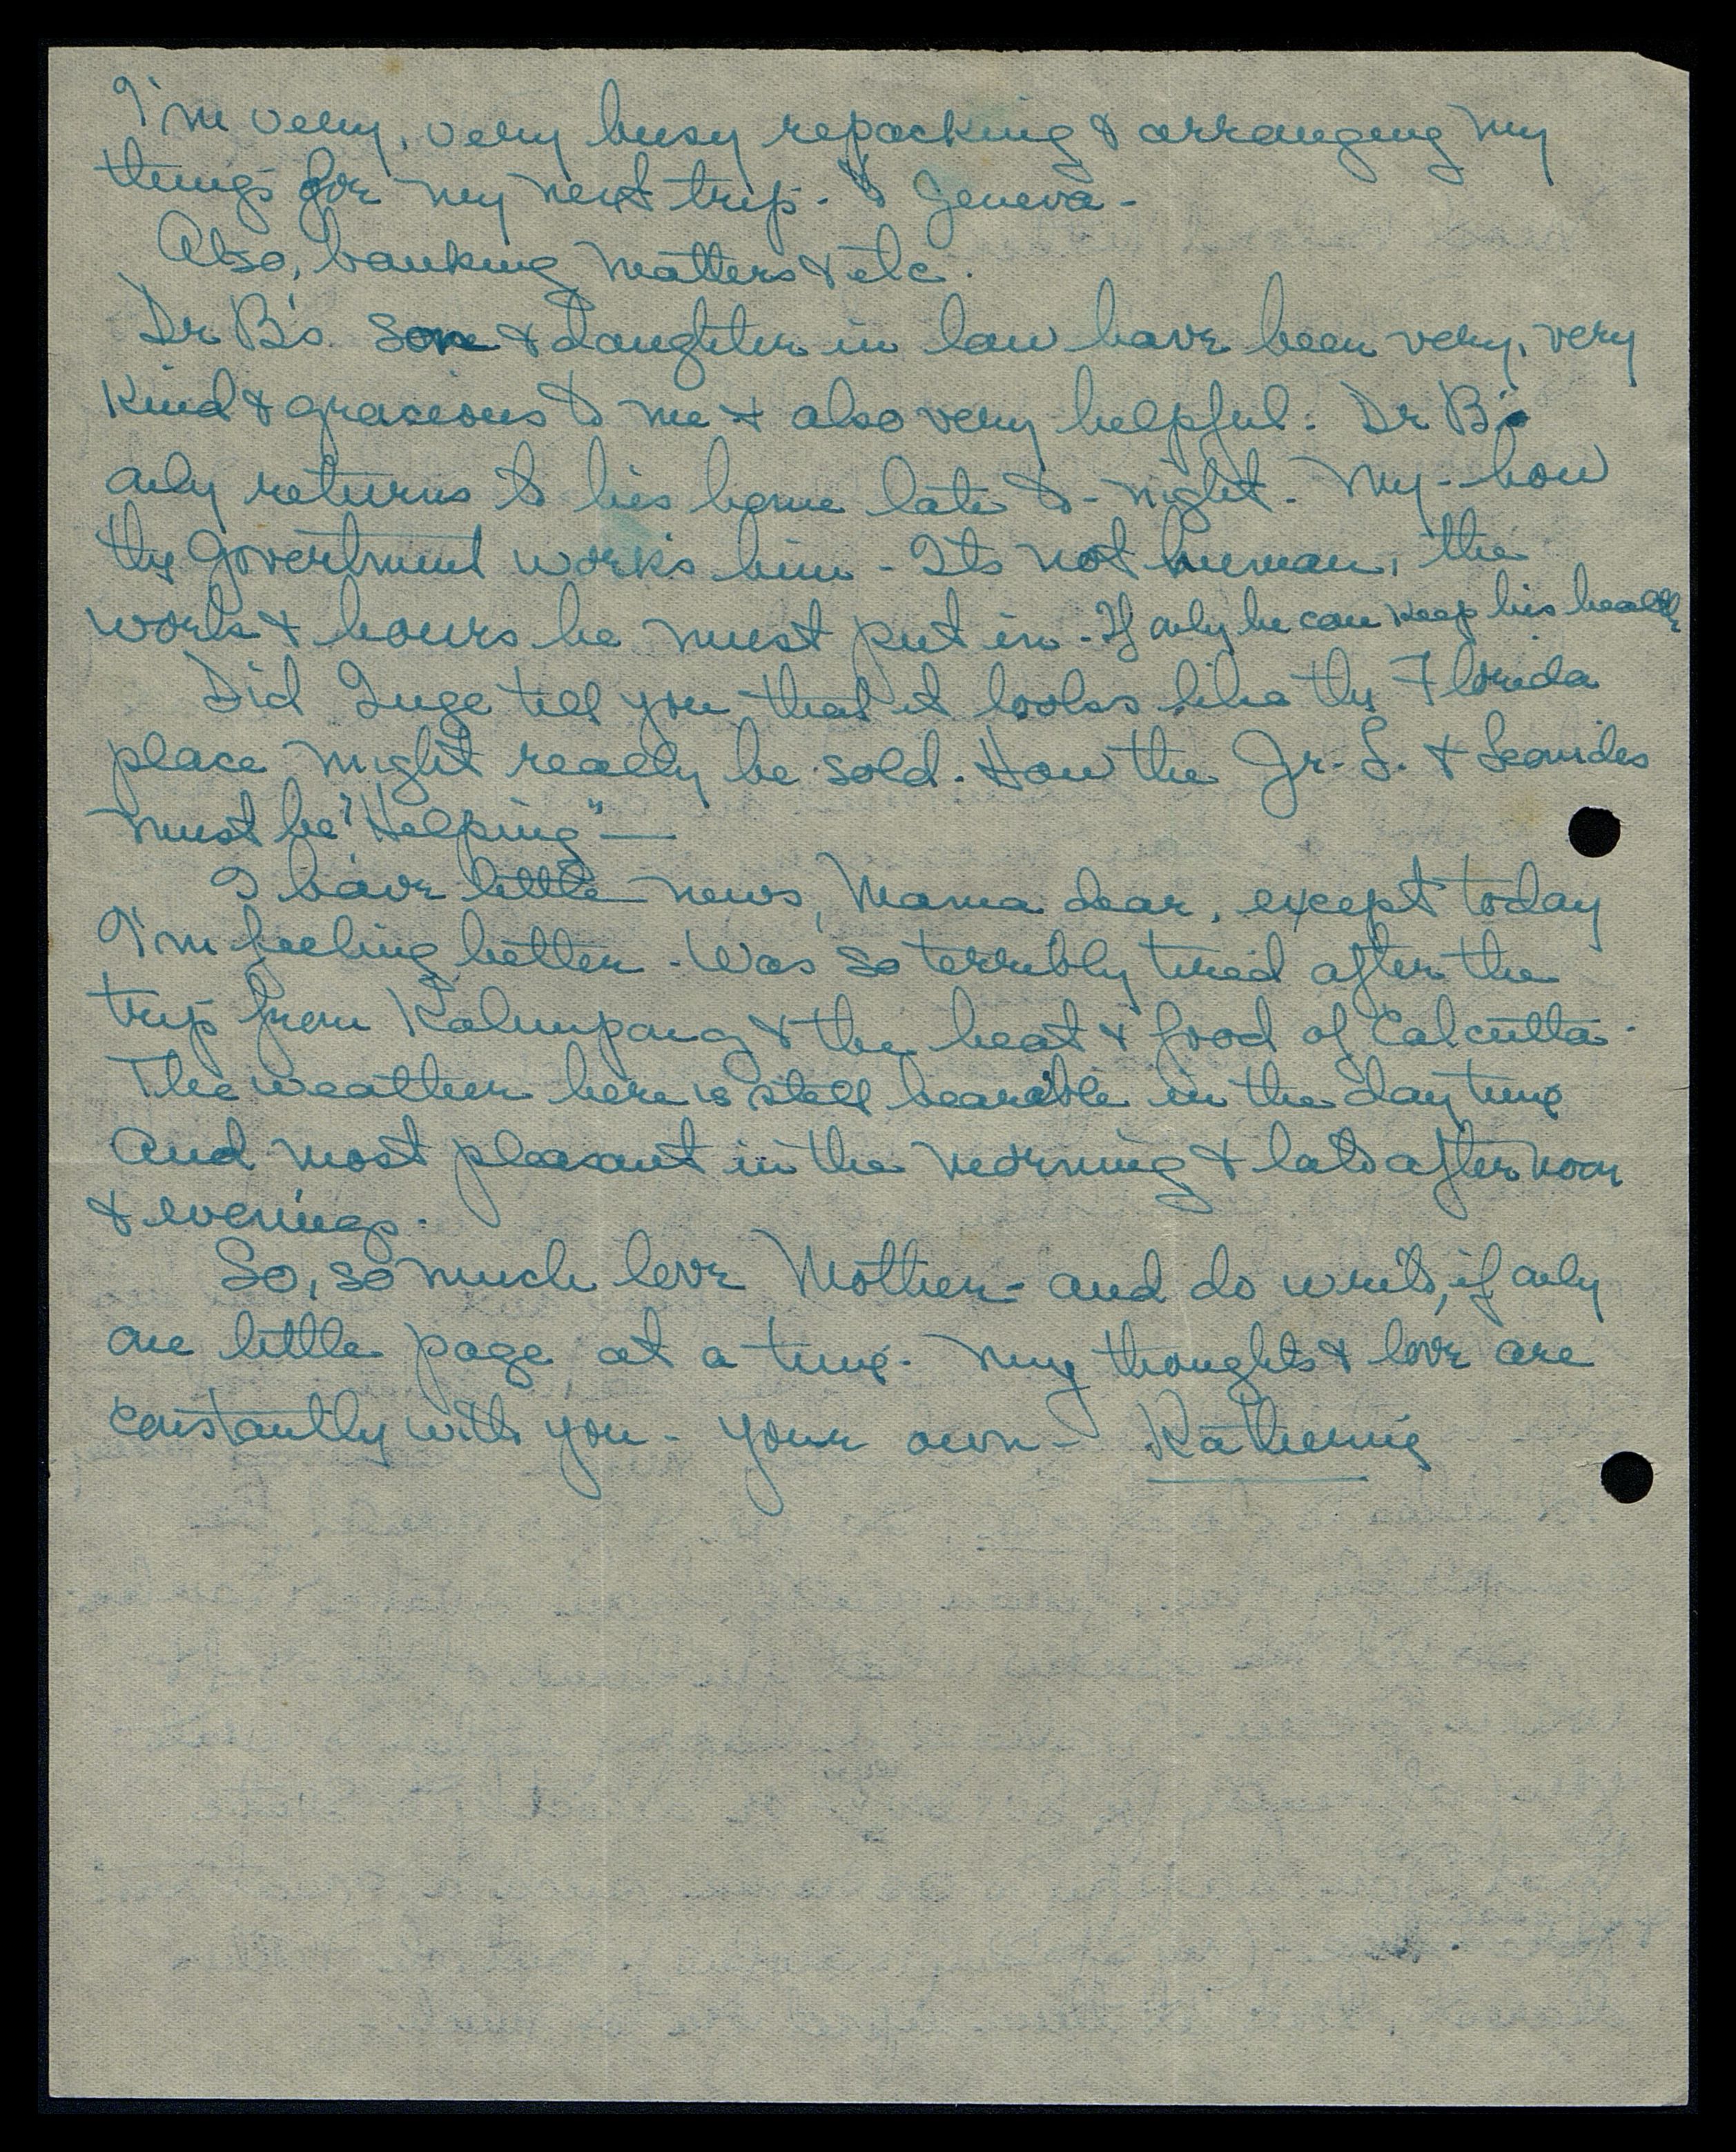 I'm very, very busy repacking & arranging my
things for my next trip - to Geneva -
Also, banking matters & etc.
Dr B's son & daughter in law have been very, very
kind & gracious to me & also very helpful. Dr B
only returns to his home late to-night. My - how
the Government works him - Its not human, the
work & hours he must put in - If only he can keep his health
Did Inge tell you that it looks like the Florida
place might really be sold. How the Jr. L. & Leonides
must be "Helping" —
I have little news, Mama dear, except today
I'm feeling better - Was so terribly tired after the
trip from Kalimpong & the heat & food of Calcutta.
The weather here is still bearable in the day time
and most pleasant in the morning & late afternoon
& evenings.
So, so much love Mother - and do write, if only
one little page at a time. My thoughts & love are
constantly with you - your own - Katherine